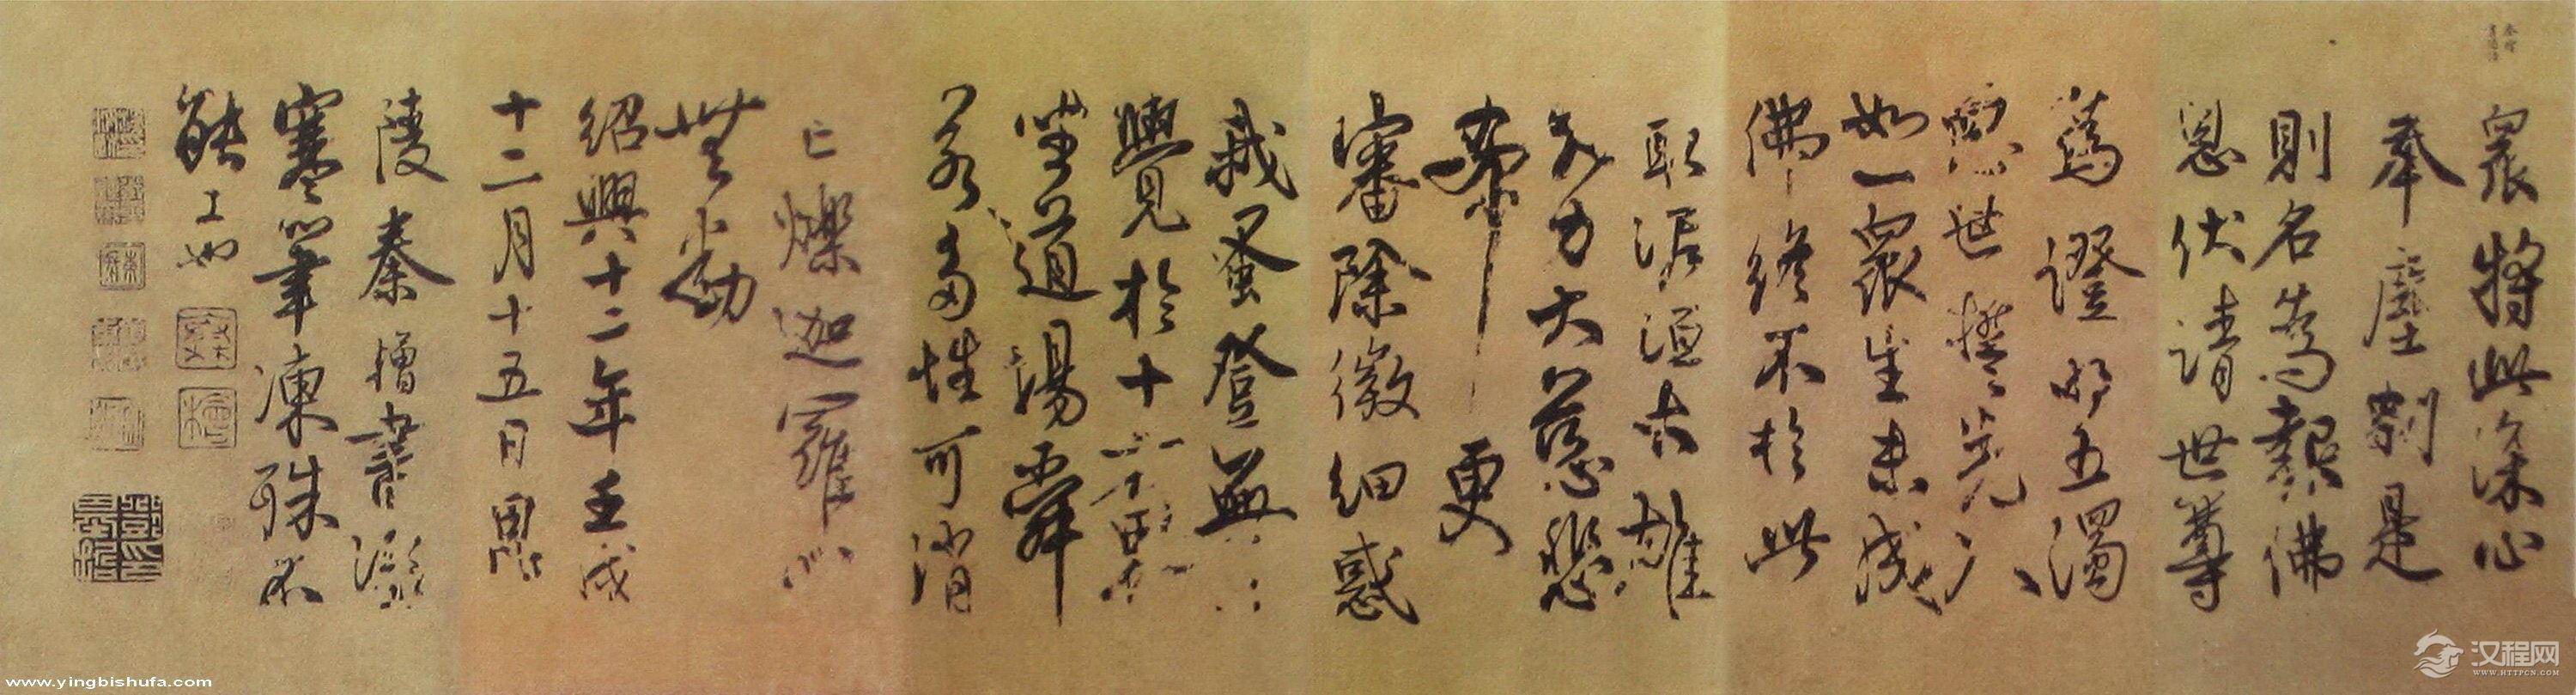 衆將此深心
奉塵刹是
則名為報佛
恩伏請世尊
為證明五濁
惡世誓先入
如一衆生未成
佛終不於此
取泥洹大雄
大力大慈悲
希更
審除微細惑
我早登無上
覺於十方界
坐道場舜
若多性可消
亡爍迦羅心
無動
紹興十二年壬戌
十二月十五日恩
陵秦檜書
寒筆凍殊不
能工也
www.yingbishufa.com
汉程网
WWW.HTTPCN.COM